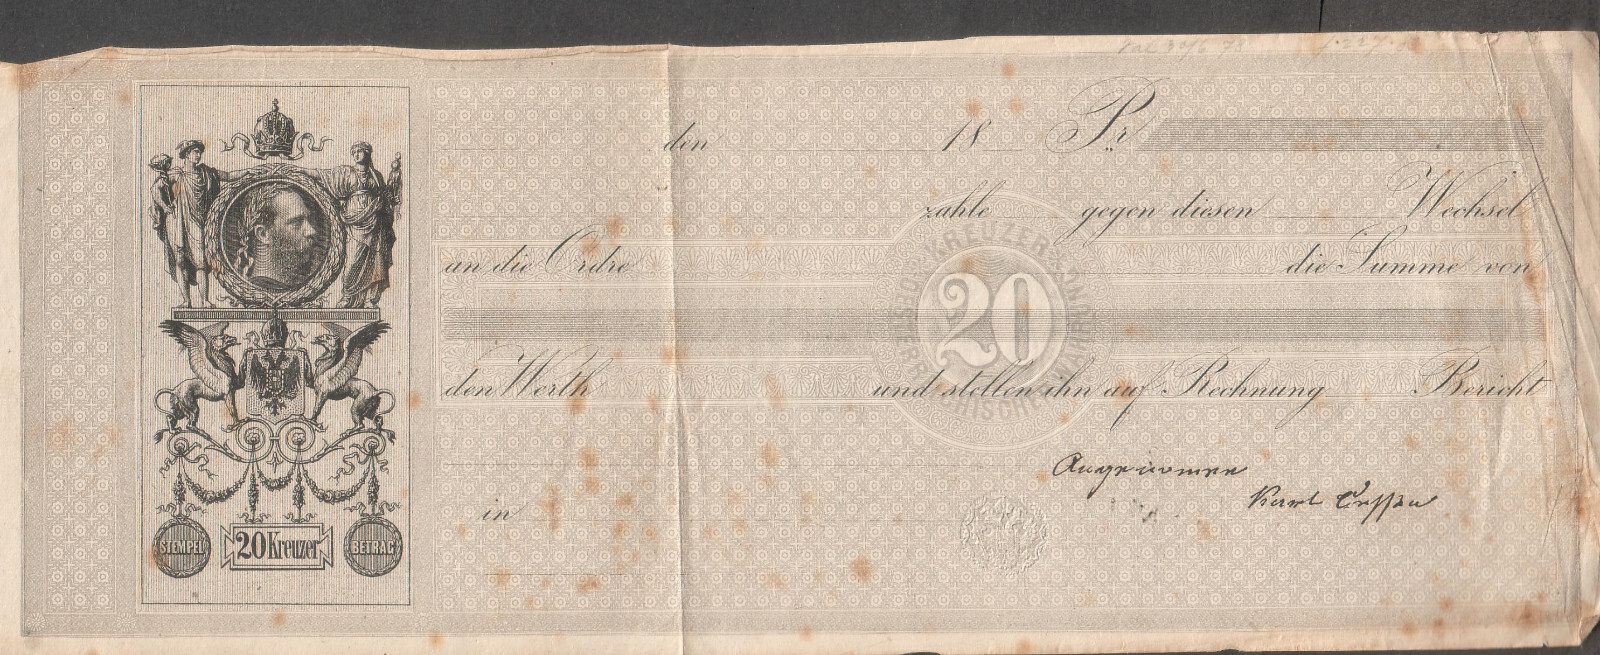 den 18 Pr
zahle gegen diesen Wechsel
an die Ordre die Summe von
KREUZER
20
den Werth und stellen ihn auf Rechnung Bericht
Angenomen
Karl
in
STEMPEL 20 Kreuzer BETRAG